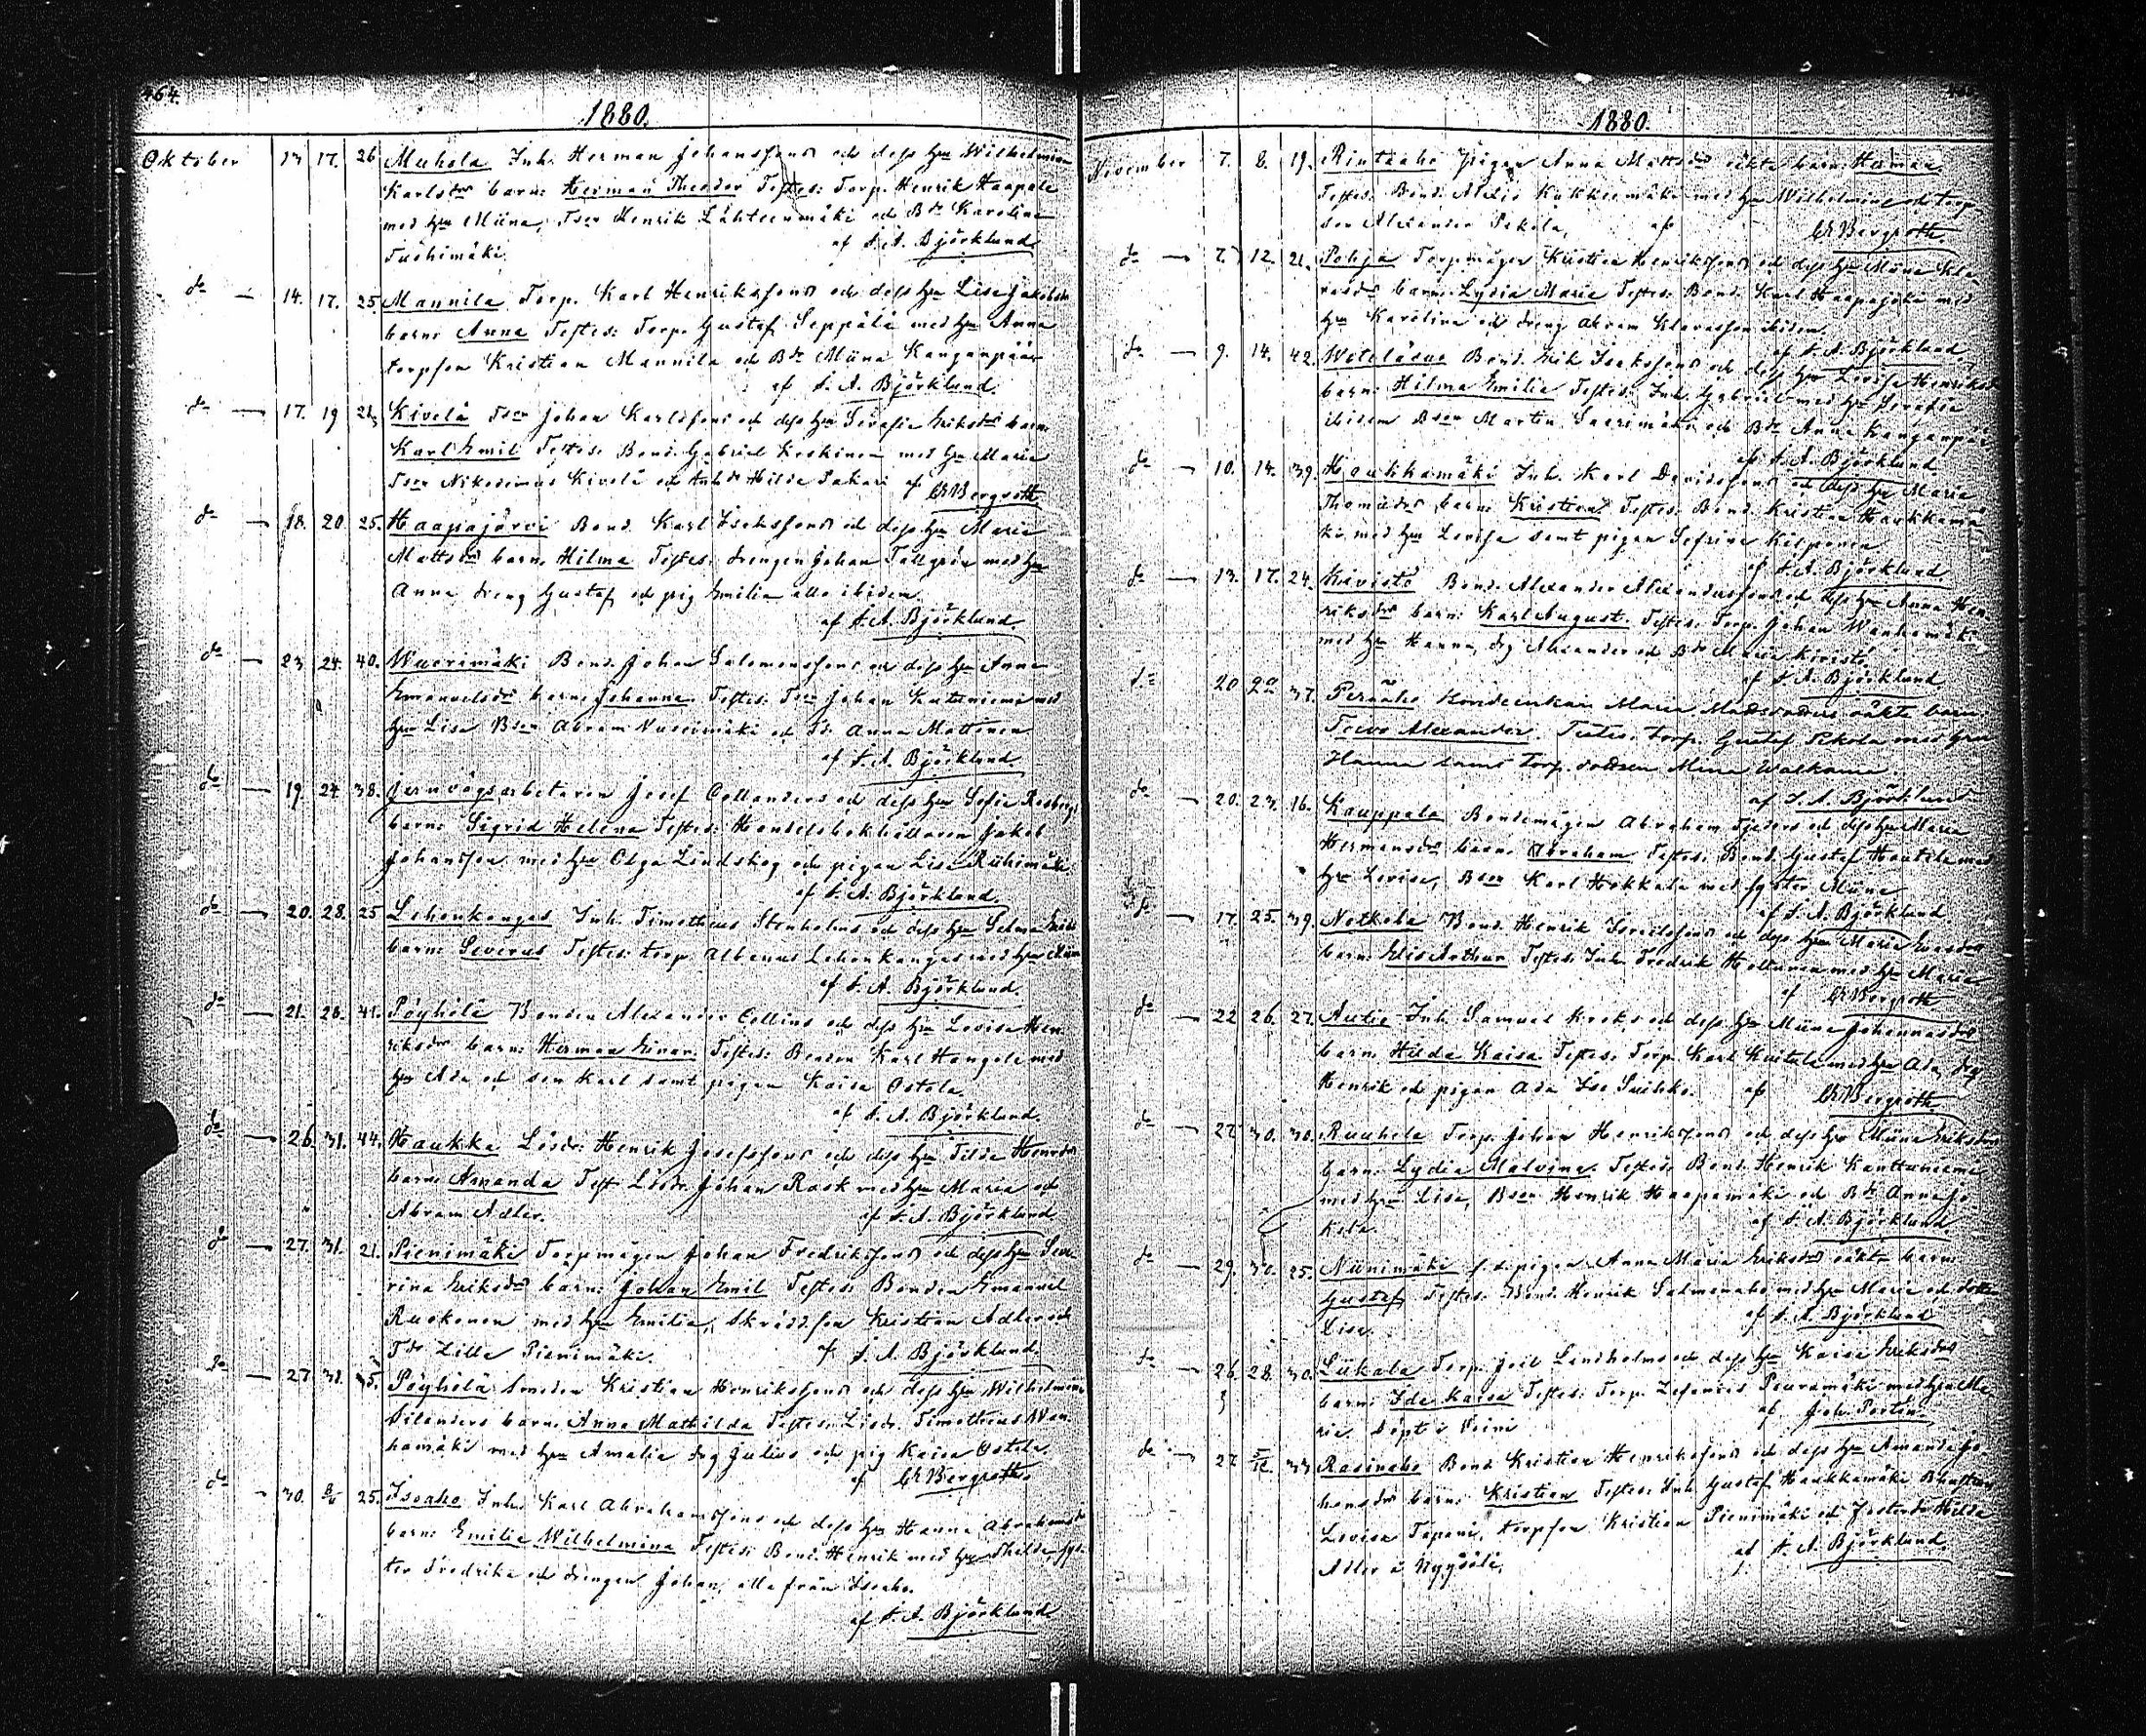 464.
1880.
Oktober 13 17. 26 Muhola Inh. Herman Johanssons och dess hu Wilhelmina
Karlsdr barn: Herman Theodor Testes: Torp. Henrik Haapala
med hu Miina, Tson Henrik Lähteenmäki och Bdr Karolina
af F. A. Björklund
do — 14. 17. 25. Mannila Torp. Karl Henrikssons och dess hu Lisa Jakobsdr
barn: Anna Testes: Torp. Gustaf Seppälä med hu Anna
torpson Kristian Mannila och Bdr Miina Kanganpää
af F. A. Björklund.
do — 17. 19 Kivelä Tson Johan Karlssons och dess hu Serafia Eriksdr barn
Karl Emil Testes: Bond. Gabriel Koskinen med hu Maria
Tson Nikodemus Kivelä och Inhdr Hilda af Bergroth
do — 18. 20. 25. Haapajärvi Bond. Karl Isakssons och dess hu Maria
Mattsdr barn: Hilma Testes: drengen Johan Tallgrén med hu
Anna dreng Gustaf och pig Emilia alla ibidem
af F. A. Björklund.
do — 23 24. 40. Wuorimäki Bond. Johan Salomonssons och dess hu Anna
Emanuelsdr barn: Johanna. Testes: Tson Johan med
hu Lisa Bson Abram Vuorimäki och Anna Mattinen
af F. A. Björklund
do — 19. 24 38. Jernvägsarbetaren Josef Collanders och dess hu Sofia
barn: Sigrid Helena Testes: Handelsbokhållaren Jakob
Johansson med hu Olga Lindskog och pigan Lisa Riihimäki
af F. A. Björklund.
do — 20. 28. 25 Lehonkangas Inh. Timotheus Stenholms och dess hu Selma
barn: Severus Testes: torp. Albinus Lehonkangas med hu
af F. A. Björklund.
do — 21. 28. 41. Pöyhölä Bonden Alexander Collins och dess hu Lovisa Hen
riksdr barn: Herman Einar. Testes: Bonden Karl med
hu Ada och son Karl samt pigan Kaisa Ostola.
af F. A. Björklund.
do — 26. 31. 44. Haukka Lösdr. Henrik Josefssons och dess hu Tilda Henrdr
barn: Amanda Test Lösdr. Johan Rask med hu Maria och
Abram Adler. af F. A. Björklund
do — 27. 31. 21. Pienimäki Torpmågen Johan Fredrikssons och dess hu Seve
rina Eriksdr barn: Johan Emil Testes: Bonden Emanuel
Ruokonen med hu Emilia, Skrädd.son Kristian Adler och
Tdr Lilla Pienimäki. af F. A. Björklund.
do — 27 31. Pöyhölä Smeden Kristian Henrikssons och dess hu Wilhelmina
Silanders barn: Anna Mathilda Testes: Lösdr. Timotheus Wan
hamäki med hu Amalia drg Julius och pig Kaisa Ostola
af Bergroth
do — 30. 25. Isoaho Inh. Karl Abrahamssons och dess hu Hanna Abrahamsdr
barn: Emilia Wilhelmina Testes: Bond. Henrik med hu Thilda, sys
ter Fredrika och drengen Johan, alla från Isoaho.
af F. A. Björklund
1880.
November 7. 8. 19. Rintaaho Pigan Anna Mattsdr oäkta barn: Herman
Testes: Bond. Alexis Kukkeenmäki med hu Wilhelmina och torp
son Alexander Pekola, af Bergroth.
do — 7. 12. 21. Pohja Torpmågen Kristian Henrikssons och dess hu Miina Kla
rasdr barn: Lydia Maria Testes: Bond. Karl Haapajoki med
hu Karolina och dreng Abram Klarasson ibidem
af F. A. Björklund
do — 9. 14. 42. Bond. Erik Isakssons och dess hu Lovisa Henriksdr
barn: Hilma Emilia Testes: Inh. Gabriel med hu Serafia
ibidem Bson Martin Saarimäki och Bdr Anna Kanganpää
af F. A. Björklund
do — 10. 14. 39. Haukkamäki Inh. Karl Davidssons och dess hu Maria
Thomasdr barn: Kristian Testes: Bond. Kristian Haukkamä
ki med hu Lovisa samt pigan Sefrina Kilponen
af F. A. Björklund
do — 13. 17. 24. Kivistö Bond. Alexander Alexanderssons och dess hu Anna Hen
riksdr barn: Karl August. Testes: Torp. Johan Wanhamäki
med hu Hanna, drg Alexander och Bdr Maria Kivistö.
af F. A. Björklund
20 37. Peräaho Bondeenkan Maria oäkta barn:
Toivo Alexander. Testes: torp. Gustaf Pekola med hru
Hanna samt torp. dottren Mina Walkama.
af F. A. Björklund
do — 20. 23. 16. Kauppala Bondemågen Abraham och dess hu Maria
Hermansdr barn: Abraham Testes: Bond. Gustaf Hautala med
hu Lovisa, Bson Karl Hokkala med syster Miina
af F. A. Björklund.
— 17. 25. 39. Notkola Bond. Henrik Israelssons och dess hu Maria
barn: Elis Arthur Testes: Inh. Fredrik med hu Maria
af Bergroth
do — 22 26. 27. Autio Inh. Samuel Kroks och dess hu Miina Johannasdr
barn: Hilda Kaisa. Testes: Torp. Karl med hu Ada, drg
Henrik och pigan Ada af Bergroth
do — 27 30. 30. Ruuhela Torp. Johan Henrikssons och dess hu Miina Eriksdr
barn: Lydia Malvina. Testes: Bond. Henrik Kanttuniemi
med hu Lisa, Bson Henrik Haapamäki och Bdr Anna Jo
kela. af F. A. Björklund
do — 29. 30. 25. Niinimäki pigan Anna Maria Eriksdr oäkta barn
Gustaf Testes: Bond. Henrik Salmenaho med hu Maria och dotter
Lisa. af F. A. Björklund
do — 26. 28. 30. Liikala Torp. Joel Lindholms och dess hu Kaisa Eriksdr
barn: Ida Kaisa Testes: Torp. Zefanias Peuramäki med hu Ma
ria. Döpt i Veini af Joh. Portin.
do — 27 33 Rasinaho Bond Kristian Henrikssons och dess hu Amanda Jo
hansdr barn: Kristian Testes: Inh Gustaf Haukkamäki
Lovisa Tapani, torpson Kristian Pienimäki och Hilda
Adler å Nygård. af F. A. Björklund